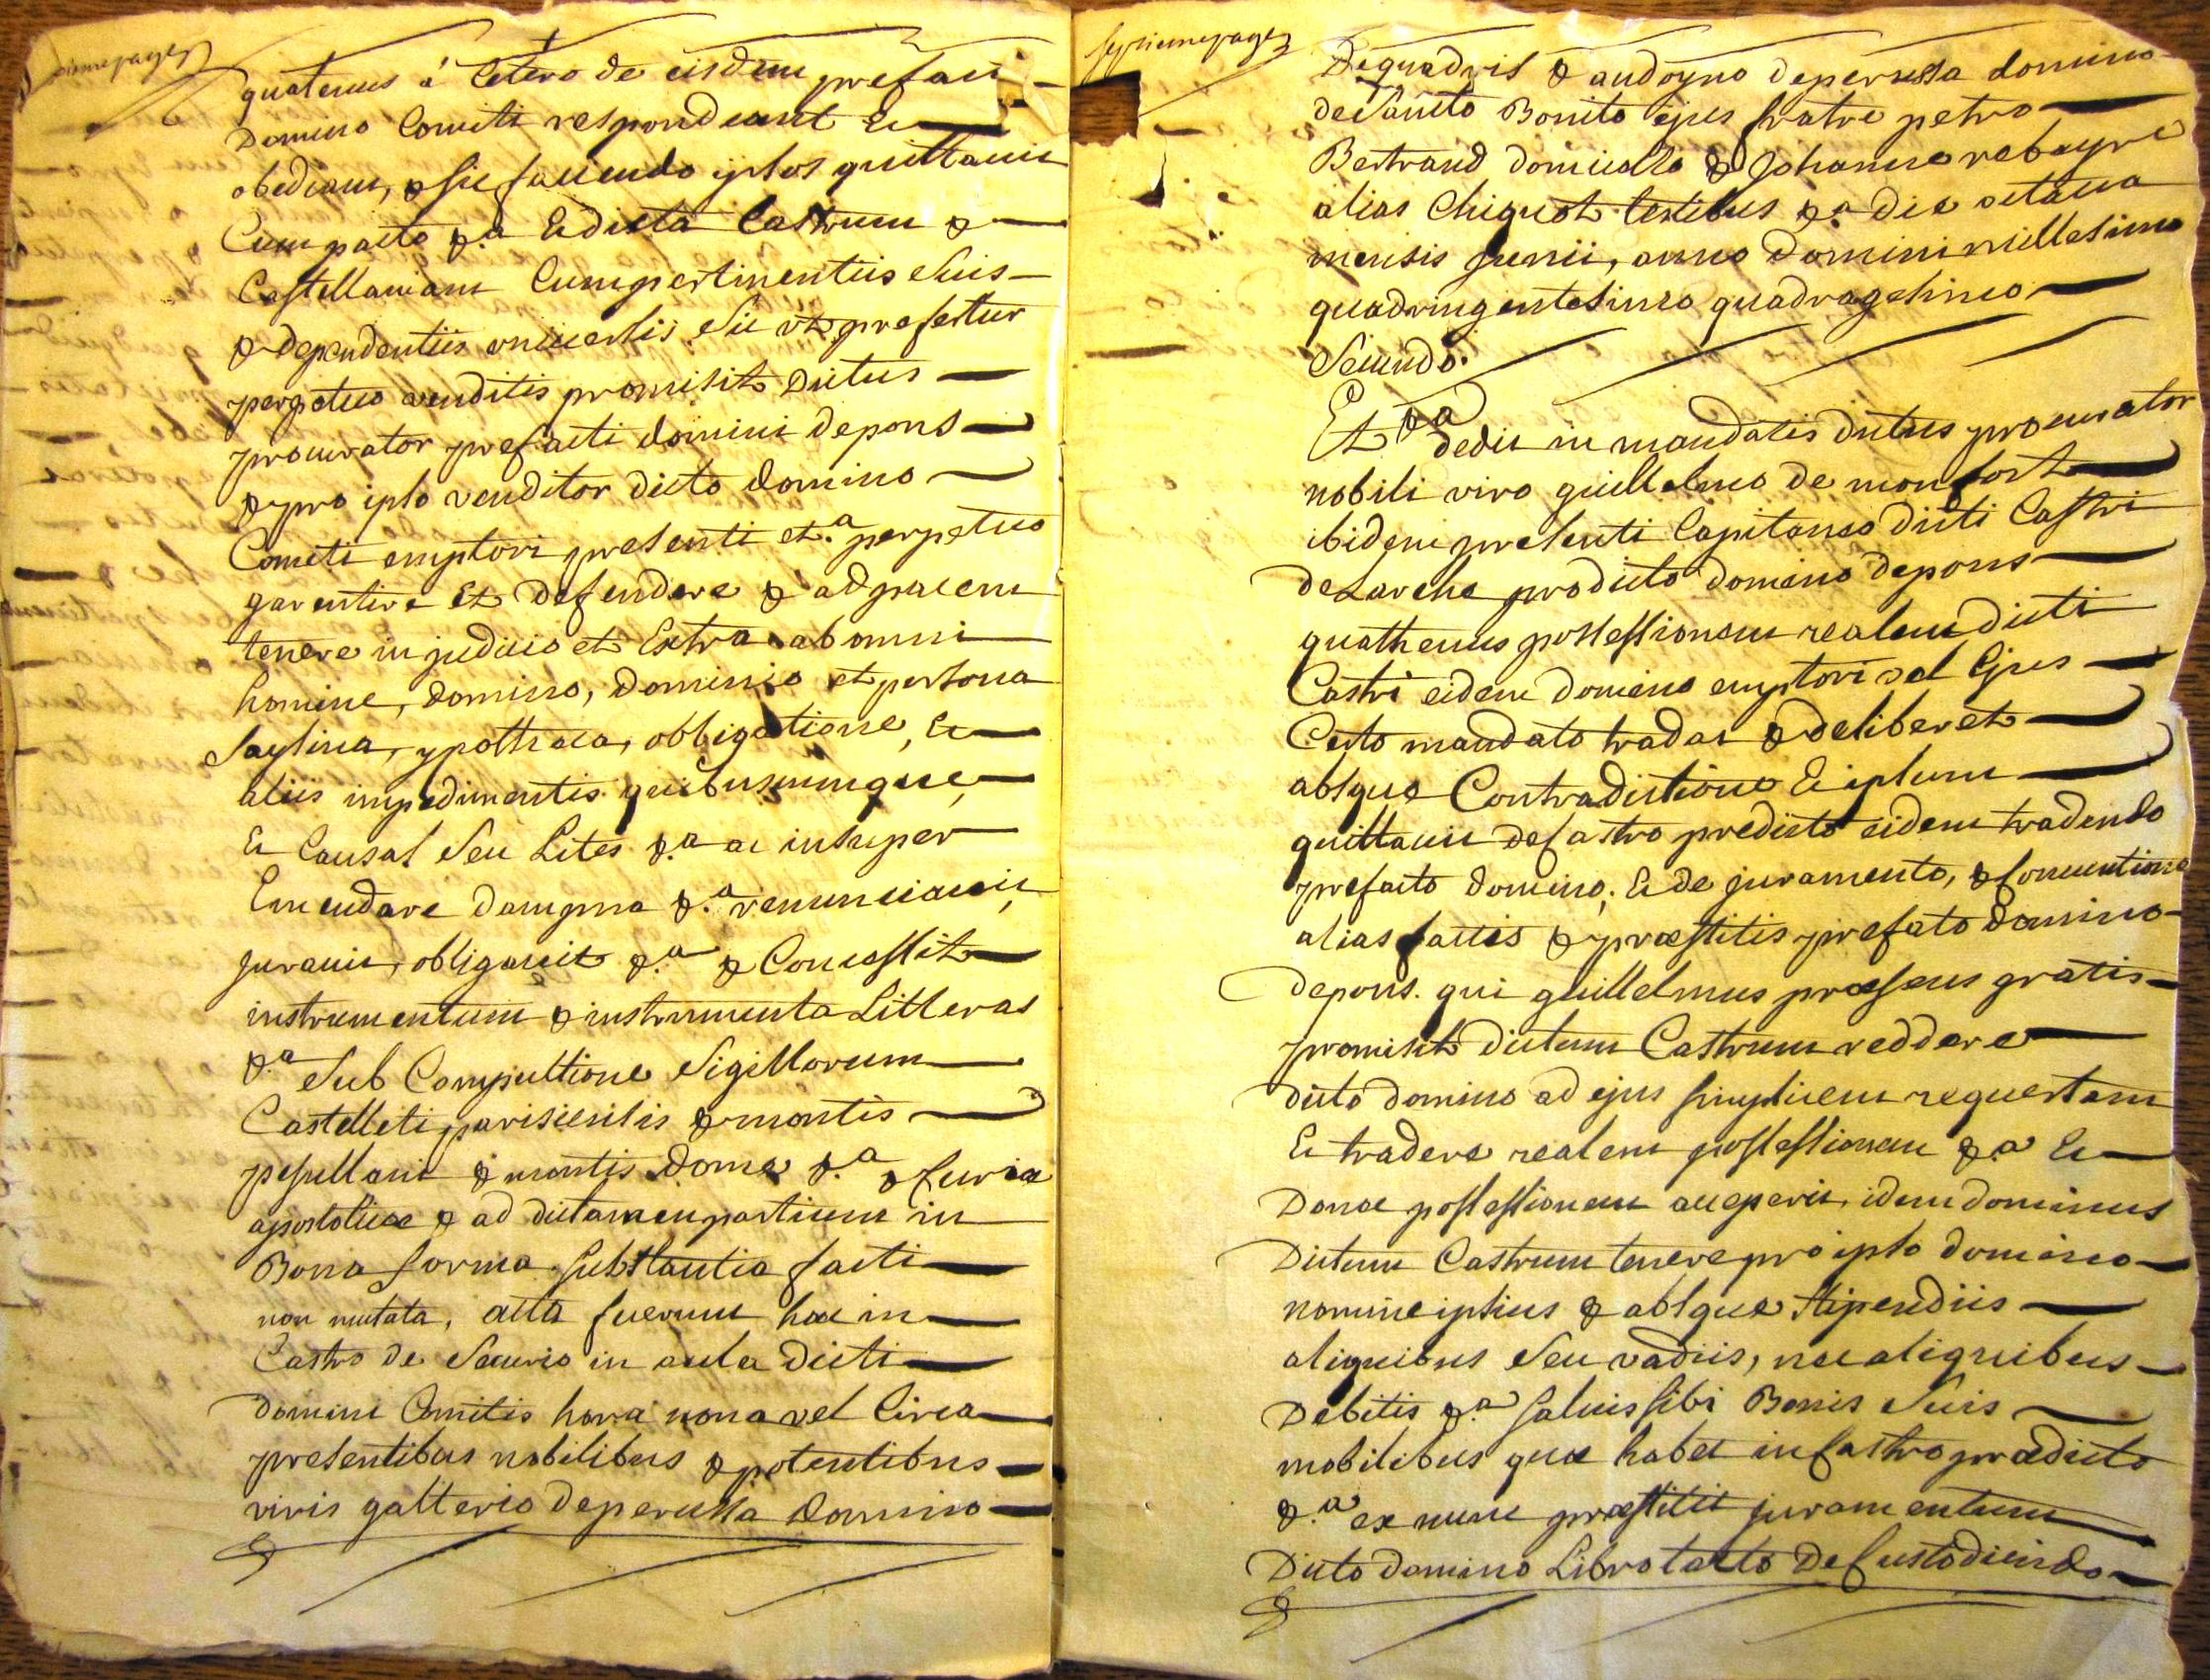 quatenus á Cetero de eisdem prefati
Domino Comiti respondeant Et
obediant, & sic faciendo ipsos quittavit
Cum pacto &.a Et dicta Castrum &
Castellaniam Cum pertinentiis suis
& dependentiis universis sic ut prefertur
perpetuo venditis promisit Dictus
procurator prefacti domini depons
& pro ipso venditor dicto domino
Comiti emptori presenti et.a perpetuo
garentire Et defendere & ad pacem
tenere in judicio et Extra ab omni
homine, domino, Dominio et persona
Saysina, ypotheca, obligatione, Et
aliis impedimentis quibuscumque,
Et Causas seu Lites &.a ac insuper
Emendare dampna &.a renunciavit,
juravit, obligavit &.a & Concessit
instrumentum & instrumenta Litteras
&.a sub Compultione sigillorum
Castelleti parisiensis & montis
pesullani & montis Dome &.a & Curiæ
apostolicæ & ad dictamen partium in
Bona forma substantia facti
non mutata, acta fuerunt hæc in
Castro de Securio in aula dicti
domini Comitis hora nona vel Circa
presentibus nobilibus & potentibus
viris galterio deperussa domino
septiemepagez
Dequadris & audoyno deperussa domino
de Sancto Bonito ejus fratre petro
Bertrand domicello & Johanne rebeyre
alias Chiquot testibus &.a die octava
mensis junii, anno Domini millesimo
quadringentesimo quadragesimo
Secundo.
Et &.a dedit in mandatis dictus procurator
nobili viro guillelmo de monfort
ibidem presenti Capitaneo dicti Castri
deLarche prodicto domino depons
quathenus possessionem realem dicti
Castri eidem domino emptori vel Ejus
Certo mandato tradat & deliberet
absque Contradictione Et ipsum
quittavit deCastro predicto eidem tradendo
prefacto domino; Et de juramento, & Conventione
alias factis & præstitis prefato domino
depons. qui guillelmus præsens gratis
promisit dictum Castrum reddere
dicto domino ad ejus simplicem requestam
Et tradere realem possessionem &.a Et
Donec possessionem acceperit, idem dominus
Dictum Castrum tenere pro ipso domino
nomine ipsius & absque stipendiis
aliquibus seu vadiis, nec aliquibus
Debitis &.a salvis sibi Bonis suis
mobilibus quæ habet in Castro prædicto
&.a ex nunc præstitit juramentum
Dicto domino Libro tacto De Custodiendo